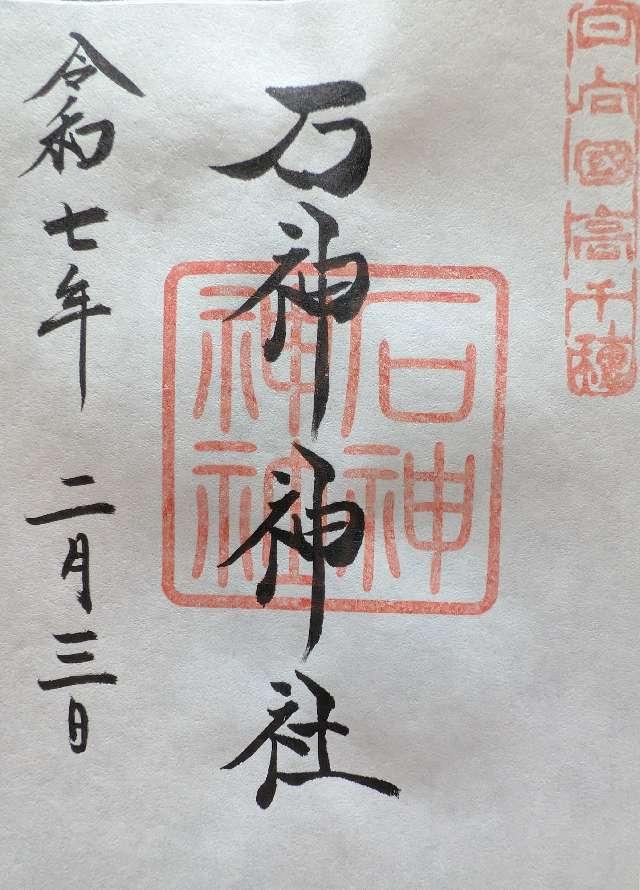 日向國高千穂
石神神社
石神神社
令和七年 二月三日